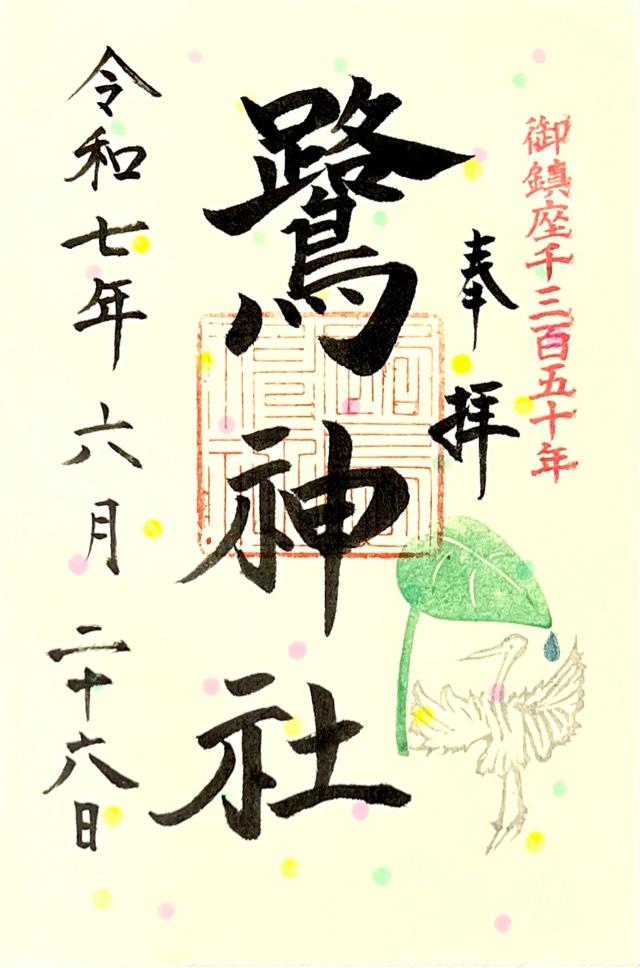 御鎮座千三百五十年
奉拝
鷺神社
令和七年六月二十六日